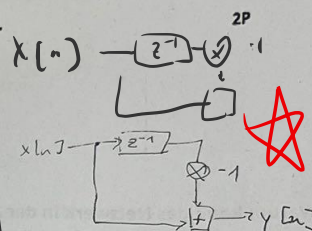 2P
X[n] z⁻¹ x -1
+
x[n] z⁻¹
x -1
+ y[n]